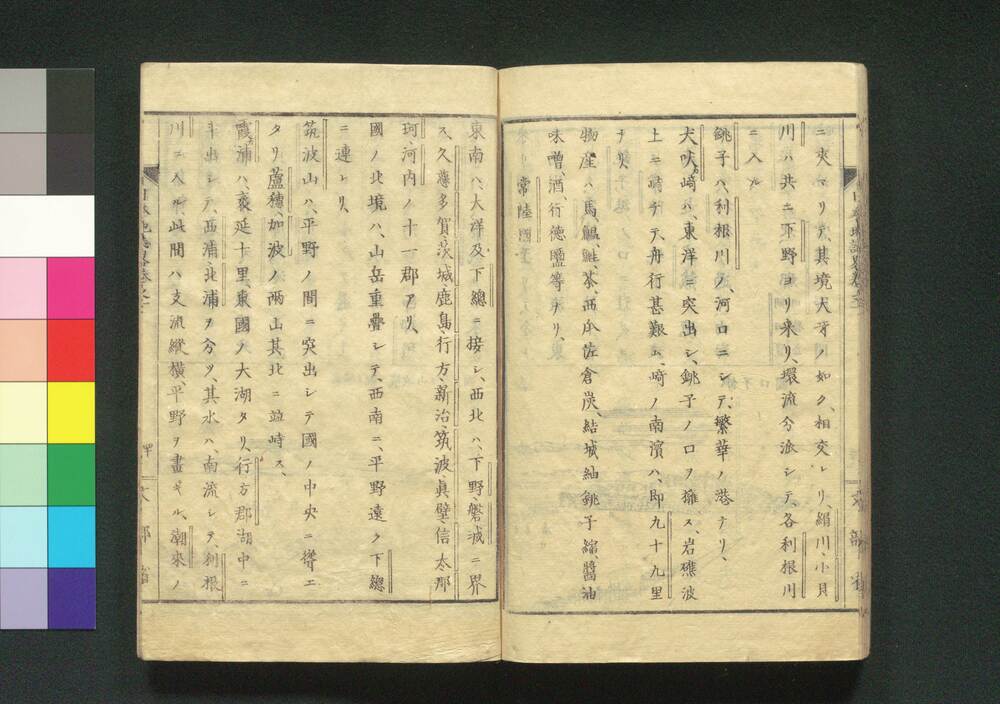 ニ夾マリテ、其境犬牙ノ如ク、相交レリ、絹川、小貝
川ハ共ニ下野ヨリ来リ、環流分派シテ、各利根川
ニ入ル
銚子ハ、利根川ノ河口ニシテ、繁華ノ港ナリ、
犬吠崎ハ、東洋ニ突出シ、銚子ノ口ヲ擁ス、岩礁波
上ニ峙チテ、舟行甚艱ム、崎ノ南濱ハ、即九十九里
ナリ、
物産ハ、馬、鰛、鮏、茶、西瓜、佐倉炭、結城紬、銚子縮、醬油
味噌、酒、行德鹽等ナリ、
常陸國
東南ハ、大洋及下總ニ接シ、西北ハ、下野、磐城ニ界
ス、久慈、多賀、茨城、鹿島、行方、新治、筑波、眞壁、信太、那
珂、河内ノ十一郡アリ、
國ノ北境ハ、山岳重疊シテ、西南ニ、平野遠ク下總
ニ連レリ、
筑波山ハ、平野ノ間ニ突出シテ國ノ中央ニ聳エ
タリ、蘆穗、加波ノ兩山其北ニ並峙ス、
霞浦ハ、袤延十里、東國ノ大湖タリ、行方郡湖中ニ
斗出シテ、西浦北浦ヲ分ツ、其水ハ、南流シテ、利根
川ニ入ル、此間ハ支流縱横、平野ヲ畫ギル、潮來ノ